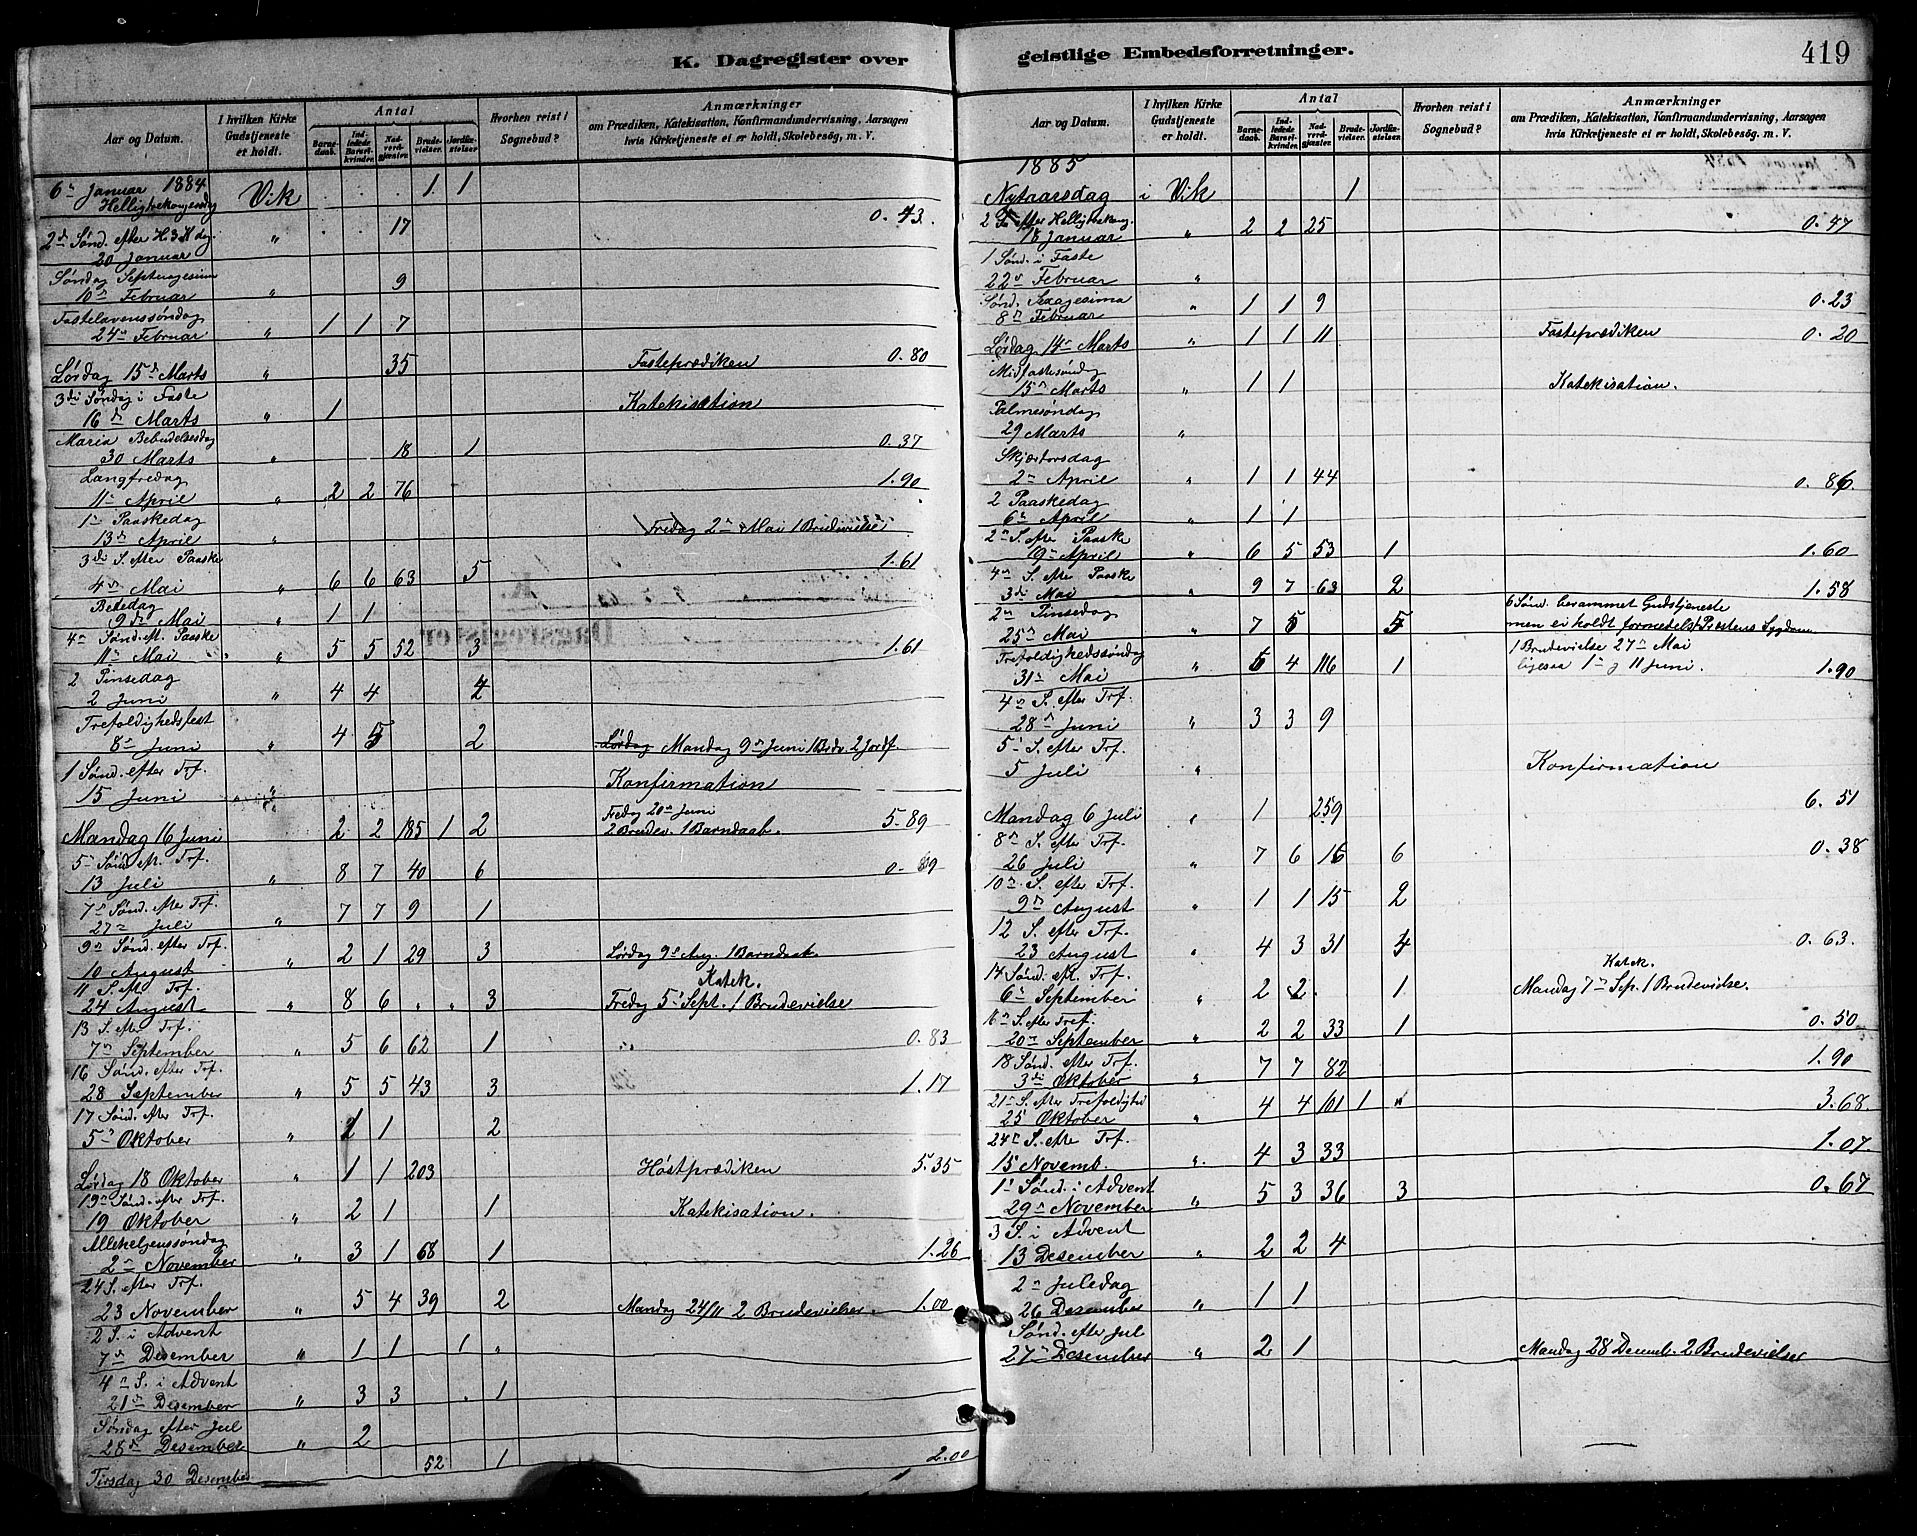 K. Dagregister over geistlige Embedsforretninger. 419
Aar og Datum. | I hvilken Kirke Gudstjeneste er holdt. | Antal | Barnedaab. | Indledede Barselkvinder. | Nadverdgjæster. | Brudevielser. | Jordfæstelser. | Hvorhen reist i Sognebud? | Anmærkninger om Prædiken, Katekisation, Konfirmandundervisning, Aarsagen hvis Kirketjeneste ei er holdt, Skolebesøg, m. V.
6te Januar 1884 Vik 1 1
Helligtrekongersdag
2den Sønd. efter H. 3 K dag. " 17 0.43.
20 Januar
Søndag Septuagesima
10de Februar " 9
Fastelavenssøndag
24de Februar " 1 1 7
Lørdag 15de Marts " 35 Fasteprædiken 0.80
3die Søndag i Faste
16de Marts " 1 Katekisation
Maria Bebudelsesdag
30 Marts " 18 1 0.37
Langfredag
11te April " 2 2 76 1.90
1te Paaskedag
13de April " Fredag 2den Mai 1 Brudevielse
3die S. efter Paaske
4de Mai " 6 6 63 5 1.61
Bededag
9de Mai " 1 1
4de Sønd. eft. Paaske
11te Mai " 5 5 52 3 1.61
2 Pinsedag
2 Juni " 4 4
Trefoldighedsfest
8de Juni " 4 5 2 Lørdag Mandag 9de Juni 1 Brdv. 2 Jordf.
1 Sønd. efter Trf.
15 Juni " Konfirmation
Fredag 20de Juni
Mandag 16 Juni 2 2 185 1 2 2 Brudev. 1 Barndaab. 5.89
5te Sønd. eft. Trf.
13 Juli " 8 7 40 6 0.89
7de Sønd. efter Trf.
27de Juli " 7 7 9 1
9de Sønd. efter Trf.
10 August " 2 1 29 3 Lørdag 9de Aug. 1 Barndaab.
11 S. eft. Trf. Katek.
24 August " 8 6 " " 3 Fredag 5te Sept. 1 Brudevielse
13 S. efter Trf.
7de September " 5 6 62 1 0.83
16 Sønd. efter Trf.
28 September " 5 5 43 3 1.17
17 Sønd. efter Trf.
5te Oktober " 1 2
Lørdag 18 Oktober " 1 1 203 Høstprædiken 5.35
19de Sønd. efter Trf.
19 Oktober " 2 1 1 Katekisation.
Allehelgenssøndag
2den November " 3 1 68 1 1.26
24 S. efter Trf.
23 November " 5 4 39 2 Mandag 24/11 2 Brudevielser. 1.00
2 S. i Advent
7de Desember " 1 1 1 "
4de S. i Advent
21de Desember " 3 3 1
Søndag efter Jul
28de Desember " 2
Tirsdag 30 Desember 52 1 2.00
Aar og Datum. | I hvilken Kirke Gudstjeneste er holdt. | Antal | Barnedaab. | Indledede Barselkvinder. | Nadverdgjæster. | Brudevielser. | Jordfæstelser. | Hvorhen reist i Sognebud? | Anmærkninger om Prædiken, Katekisation, Konfirmandundervisning, Aarsagen hvis Kirketjeneste ei er holdt, Skolebesøg m. V.
1885
Nytaarsdag i Vik 1
2 S. efter Helligtrekong.
18 Januar " 2 2 25 0.47
1 Sønd. i Faste
22de Februar "
Sønd. Sexagesima
8de Februar " 1 1 9 0.23
Lørdag 14de Marts " 1 1 11 Fasteprædiken 0.20
Midfastesøndag
15de Marts " 1 1 Katekisation.
Palmesøndag
29 Marts "
Skjærtorsdag
2den April " 1 1 44 0.86.
2 Paaskedag
6te April " 1 1
2den S. efter Paaske
19de April " 6 5 53 1 1.60
4de S. efter Paaske
3die Mai " 9 7 63 2 1.58
2den Pinsedag 6 Sønd. berammet Gudstjeneste
25de Mai " 7 5 men ei holdt formedelst Prestens Sygdom
Trefoldighedssøndag 1 Brudevielse 27de Mai
31te Mai " 5 4 116 1 ligesaa 1te og 11 Juni. 1.90
4de S. efter Trf.
28de Juni " 3 3 9
5te S. efter Trf.
5 Juli " Konfirmation
Mandag 6 Juli " 1 259 6.51
8de S. efter Trf.
26 Juli " 7 6 16 6 0.38
10de S. efter Trf.
9de August " 1 1 15 2
12 S. efter Trf.
23 August " 4 3 31 4 0.63.
14 Sønd. eft. Trf. Katek.
6te September " 2 2 1 Mandag 7de Sep. 1 Brudevielse.
16de S. efter Tref.
20de September " 2 2 33 1 0.50
18 Sønd. efter Trf.
3die Oktober " 7 7 82 1.90
21de S. efter Trefoldighed
25 Oktober " 4 4 101 1 " 3.68.
24de S. efter Trf.
15 Novemb. " 4 3 33 1.07.
1te Sønd. i Advent
29de November " 5 3 36 3 0.67
3 S. i Advent
13 Desember " 2 2 4
2den Juledag
26 Desember " 1 1
Sønd. efter Jul
27de Desember " 2 1 Mandag 28 Decemb. 2 Brudevielser